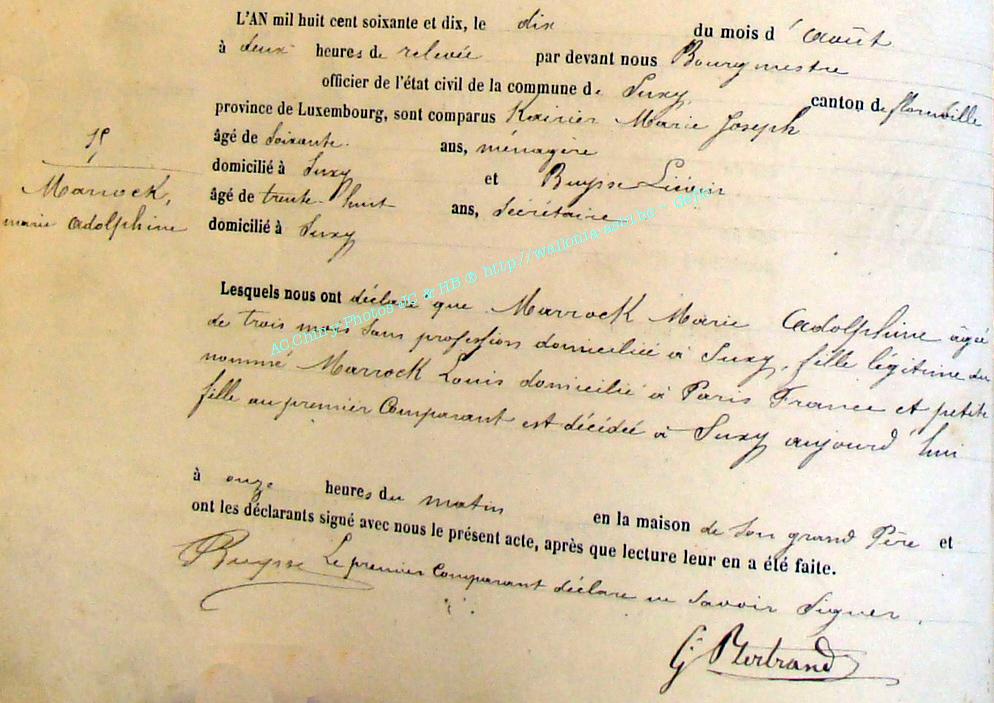 L'AN mil huit cent soixante et dix, le dix du mois d'Août
à deux heures de relevée par devant nous Bourgmestre
officier de l'état civil de la commune de Suxy canton de florenville
province de Luxembourg, sont comparus Marie Joseph
âgé de Soixante ans, ménagère
domicilié à Suxy et Buysse Liévin
âgé de trente huit ans, Secrétaire
domicilié à Suxy
15
Marrock,
marie Adolphine
Lesquels nous ont déclaré que Marrock Marie Adolphine âgé
de trois mois sans profession domiciliée à Suxy, fille légitime du
nommé Marrock Louis domicilié à Paris France et petite
fille au premier Comparant est décédée à Suxy aujourd'hui
à onze heures du matin en la maison de son grand Père et
ont les déclarants signé avec nous le présent acte, après que lecture leur en a été faite.
Buysse Le premier Comparant déclare ne Savoir Signer.
G Bertrand
AC.Chiny Photos JC & HB ® http://wallonia-asbl.be - depo